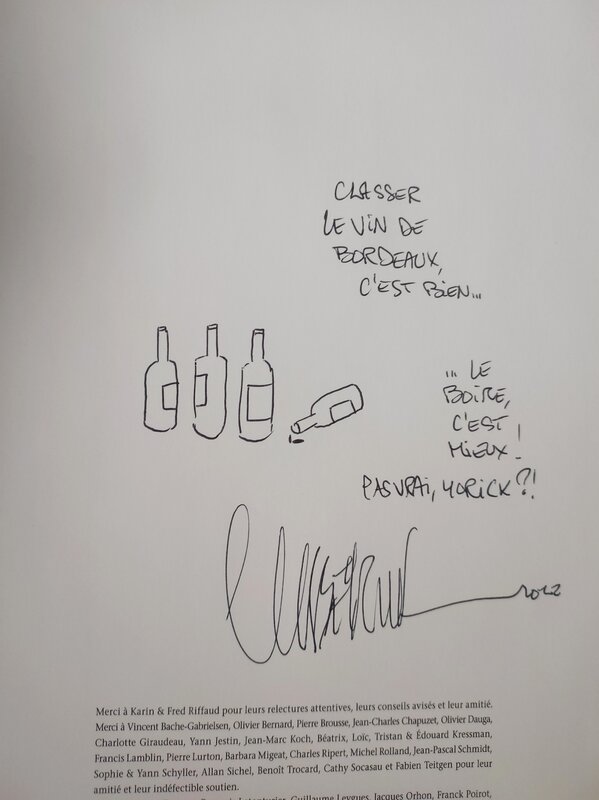 CLASSER
LE VIN DE
BORDEAUX,
C'EST BIEN...
... LE
BOIRE,
C'EST
MIEUX !
PAS VRAI, YORICK ?!
2022
Merci à Karin & Fred Riffaud pour leurs relectures attentives, leurs conseils avisés et leur amitié.
Merci à Vincent Bache-Gabrielsen, Olivier Bernard, Pierre Brousse, Jean-Charles Chapuzet, Olivier Dauga,
Charlotte Giraudeau, Yann Jestin, Jean-Marc Koch, Béatrix, Loïc, Tristan & Édouard Kressman,
Francis Lamblin, Pierre Lurton, Barbara Migeat, Charles Ripert, Michel Rolland, Jean-Pascal Schmidt,
Sophie & Yann Schyller, Allan Sichel, Benoît Trocard, Cathy Socasau et Fabien Teitgen pour leur
amitié et leur indéfectible soutien.
Guillaume Jacques Orhon, Franck Poirot,